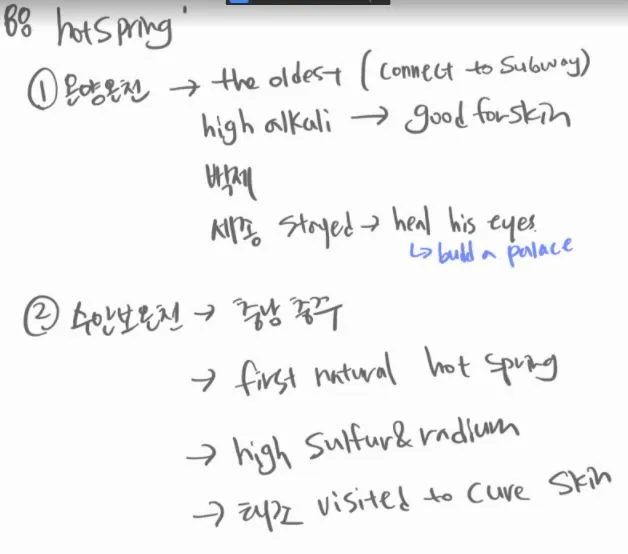 hotspring
① 온양온천 → the oldest (connect to subway)
high alkali → good for skin
백제
세종 stayed → heal his eyes
↳ build a palace
② 수안보온천 → 충남 충주
→ first natural hot spring
→ high sulfur & radium
→ 태조 visited to cure skin